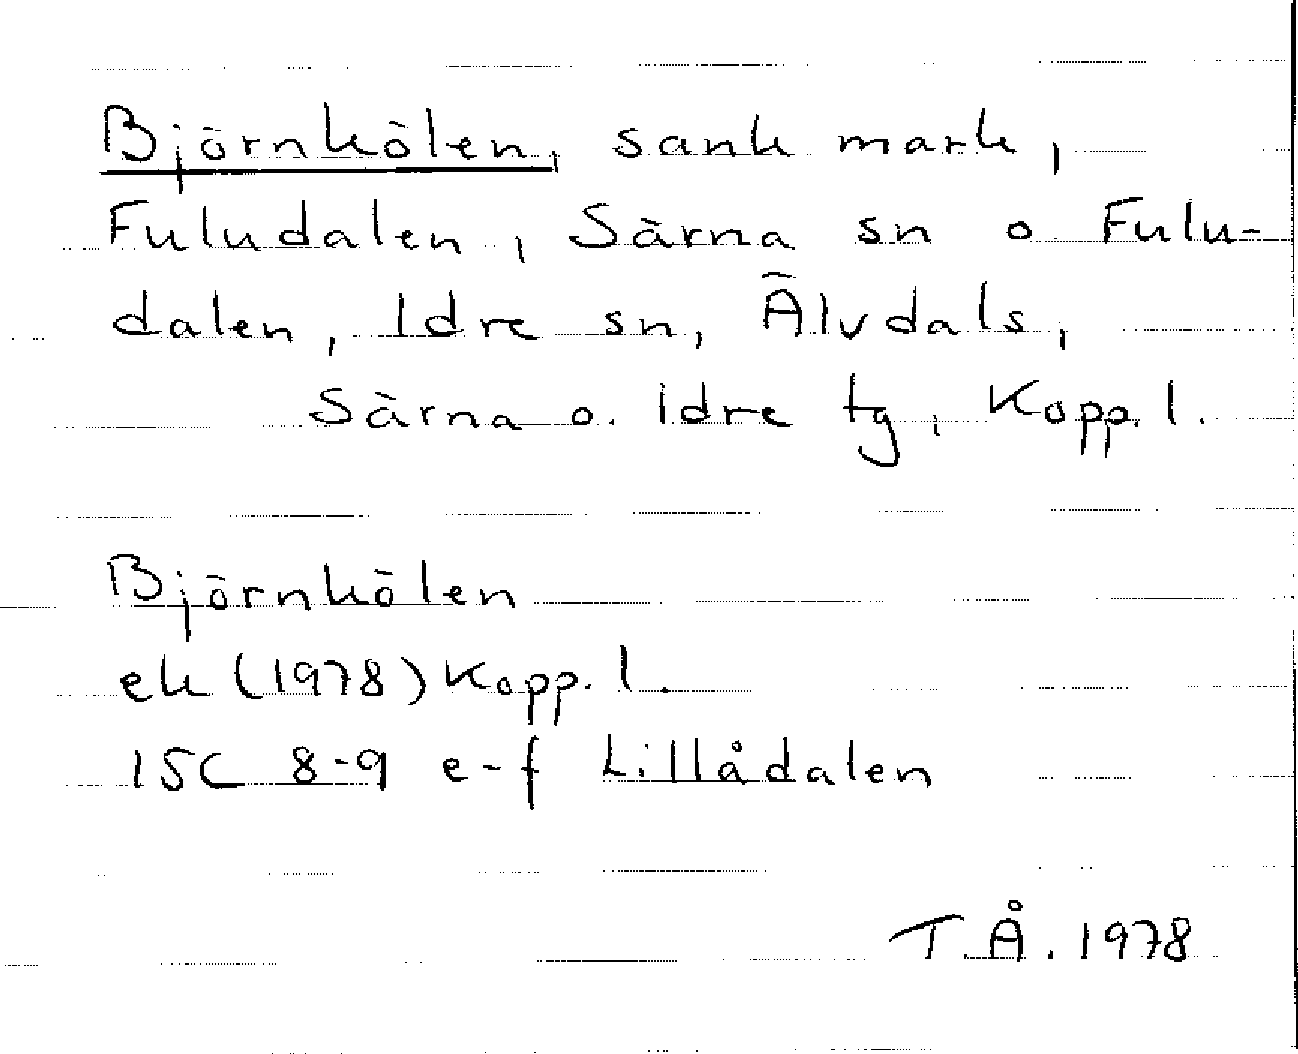 Björnkölen, sank mark,
Fuludalen, Särna sn o Fulu-
dalen, Idre sn, Älvdals,
Särna o. Idre tg, Kopp. l.
Björnkölen
ek (1978) Kopp. l.
15C 8-9 e-f Lillådalen
T.Å. 1978